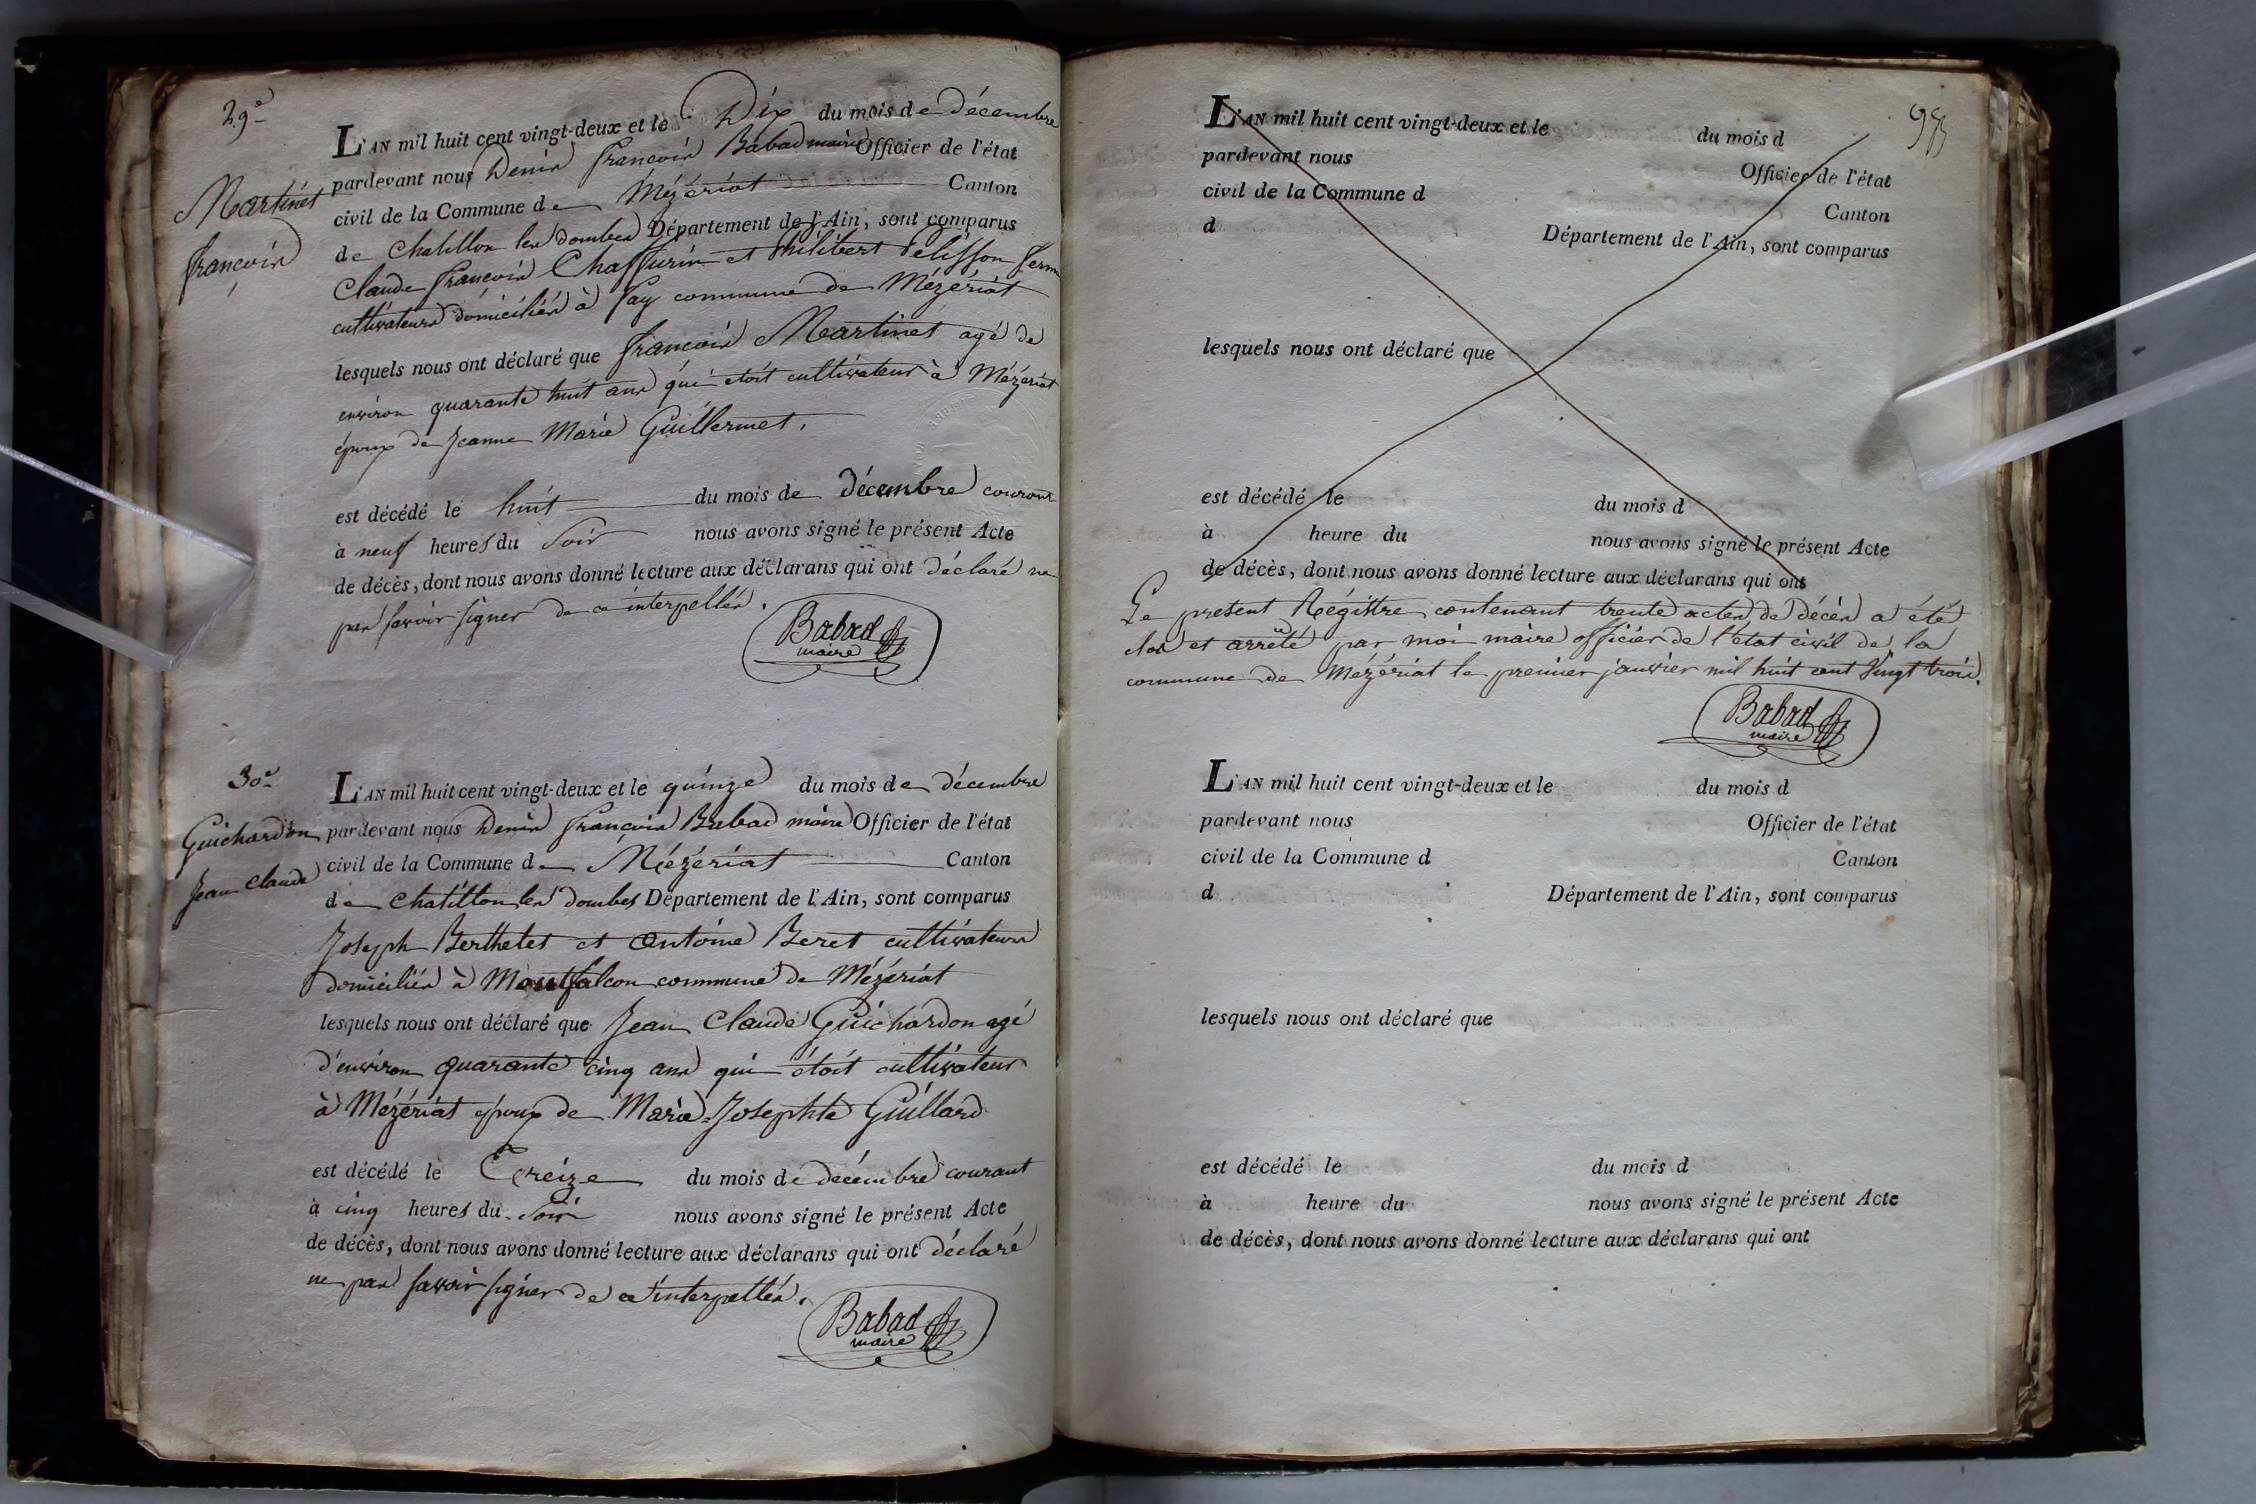 29e
Martinet
françois
L'AN mil huit cent vingt-deux et le Dix du mois de décembre
pardevant nous Denis françois Babad maire Officier de l'état
civil de la Commune de Mézériat Canton
de Chatillon les dombes Département de l'Ain, sont comparus
Claude françois Chaffurin et Philibert Pelisson
cultivateurs domiciliés à fay commune de Mézériat
lesquels nous ont déclaré que françois Martinet agé de
environ quarante huit ans qui etoit cultivateur à Mézériat
époux de Jeanne Marie Guillermet.
est décédé le huit du mois de décembre courant
à neuf heures du soir nous avons signé le présent Acte
de décès, dont nous avons donné lecture aux déclarans qui ont déclaré ne
pas savoir signer de ce interpellés.
Babad
maire
30e
Guichardon
Jean Claude
L'AN mil huit cent vingt-deux et le quinze du mois de décembre
pardevant nous Denis françois Babad maire Officier de l'état
civil de la Commune de Mézériat Canton
de Chatillon les dombes Département de l'Ain, sont comparus
Joseph Berthelet et Antoine Beret cultivateurs
domiciliés à Montfalcon commune de Mézériat
lesquels nous ont déclaré que Jean Claude Guichardon agé
d'environ quarante cinq ans qui étoit cultivateur
à Mézériat époux de Marie-Josephte Guillard
est décédé le Treize du mois de décembre courant
à cinq heures du soir nous avons signé le présent Acte
de décès, dont nous avons donné lecture aux déclarans qui ont déclaré
ne pas savoir signer de ce interpellés.
Babad
maire
L'AN mil huit cent vingt-deux et le du mois d
pardevant nous Officier de l'état
civil de la Commune d Canton
d Département de l'Ain, sont comparus
lesquels nous ont déclaré que
est décédé le du mois d
à heure du nous avons signé le présent Acte
de décès, dont nous avons donné lecture aux déclarans qui ont
Le present Régittre contenant trente actes de décès a été
clos et arrêté par moi maire officier de l'état civil de la
commune de Mézériat le premier janvier mil huit cent vingt trois.
Babad
maire
L'AN mil huit cent vingt-deux et le du mois d
pardevant nous Officier de l'état
civil de la Commune d Canton
d Département de l'Ain, sont comparus
lesquels nous ont déclaré que
est décédé le du mois d
à heure du nous avons signé le présent Acte
de décès, dont nous avons donné lecture aux déclarans qui ont